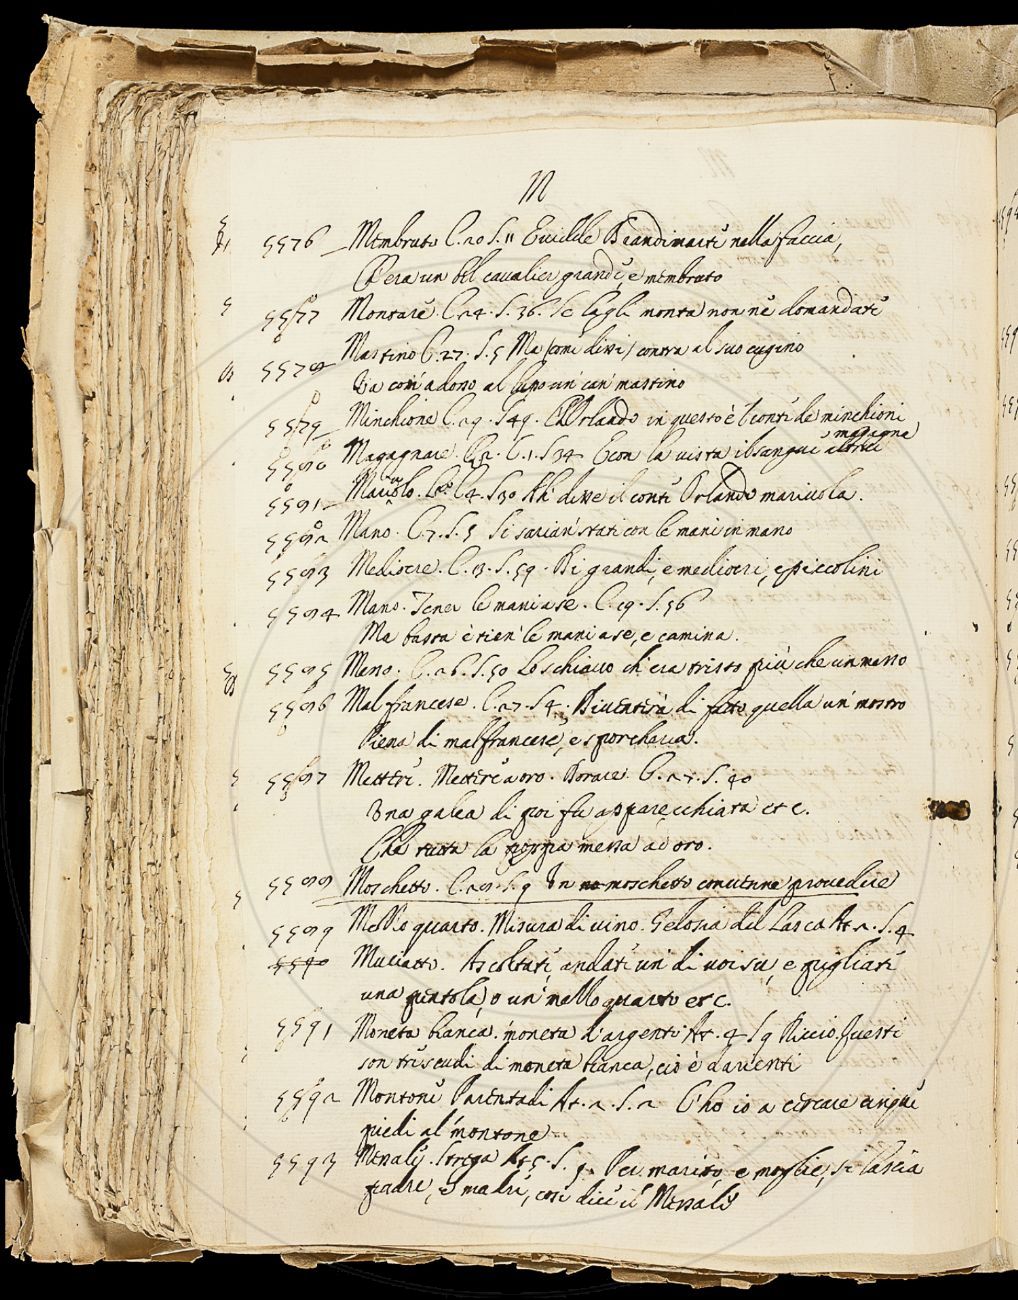 M
5576 Membruto C. 20 S. 11 Euidde Brandimarte nella faccia,
Ch'era un bel caualier grande, e membruto
5577 Montare. C. 24. S. 36. Se l'agli monta non ne domandate
5578 Mastino C. 27. S. 5 Ma (come dissi) contra al suo cugino
Va com' adosso al lupo un can mastino
5579 Minchione C. 29. S 49. Ch'Orlando in questo è 'l conte de minchioni
5580 Magagnare. C. 1. S 34 E con la uista il sangue altrui magagna
5581 Mariolo. C 4. S 30 Ah disse il conte Orlando mariuola.
5582 Mano. C. 7. S. 5 Si sarian stati con le mani in mano
5583 Mediocre. C. 13. S. 59. Di grandi, e mediocri, e piccolini
5584 Mano. Tener le mani a se. C. 19. S. 56
Ma basta e tien le mani a se, e camina.
5585 Mano. C. 26. S. 50 Lo schiauo ch'era tristo più che un
5586 Mal francese. C. 27. S 4. Diuenterà di fatto quella un mostro
Piena di mal francese, e sporcheria.
5587 Mettere. Mettere a oro. Dorare. C. S. 40
Vna galea di poi fu apparecchiata etc.
Che tutta la poppa messa ad oro.
5588 Moschetto. C. S. 9 In moschetto conuenne prouedere
5589 Mezzo quarto. Misura di uino. Gelosia del Lasca At 2. S. 4
5590 Ascoltate, andate un di uoi su, e pigliate
una pentola, o un mezzo quarto etc.
5591 Moneta bianca. moneta d'argento At. 4 S 9 Riccio. Questi
son tre scudi di moneta bianca, cio è d'arienti
5592 Montone At. 2. S. 2 C'ho io a cercare cinque
piedi al montone
5593 Strega At 5. S. 9. Per marito, e moglie, si lascia
padre, e madre, cosi dice il